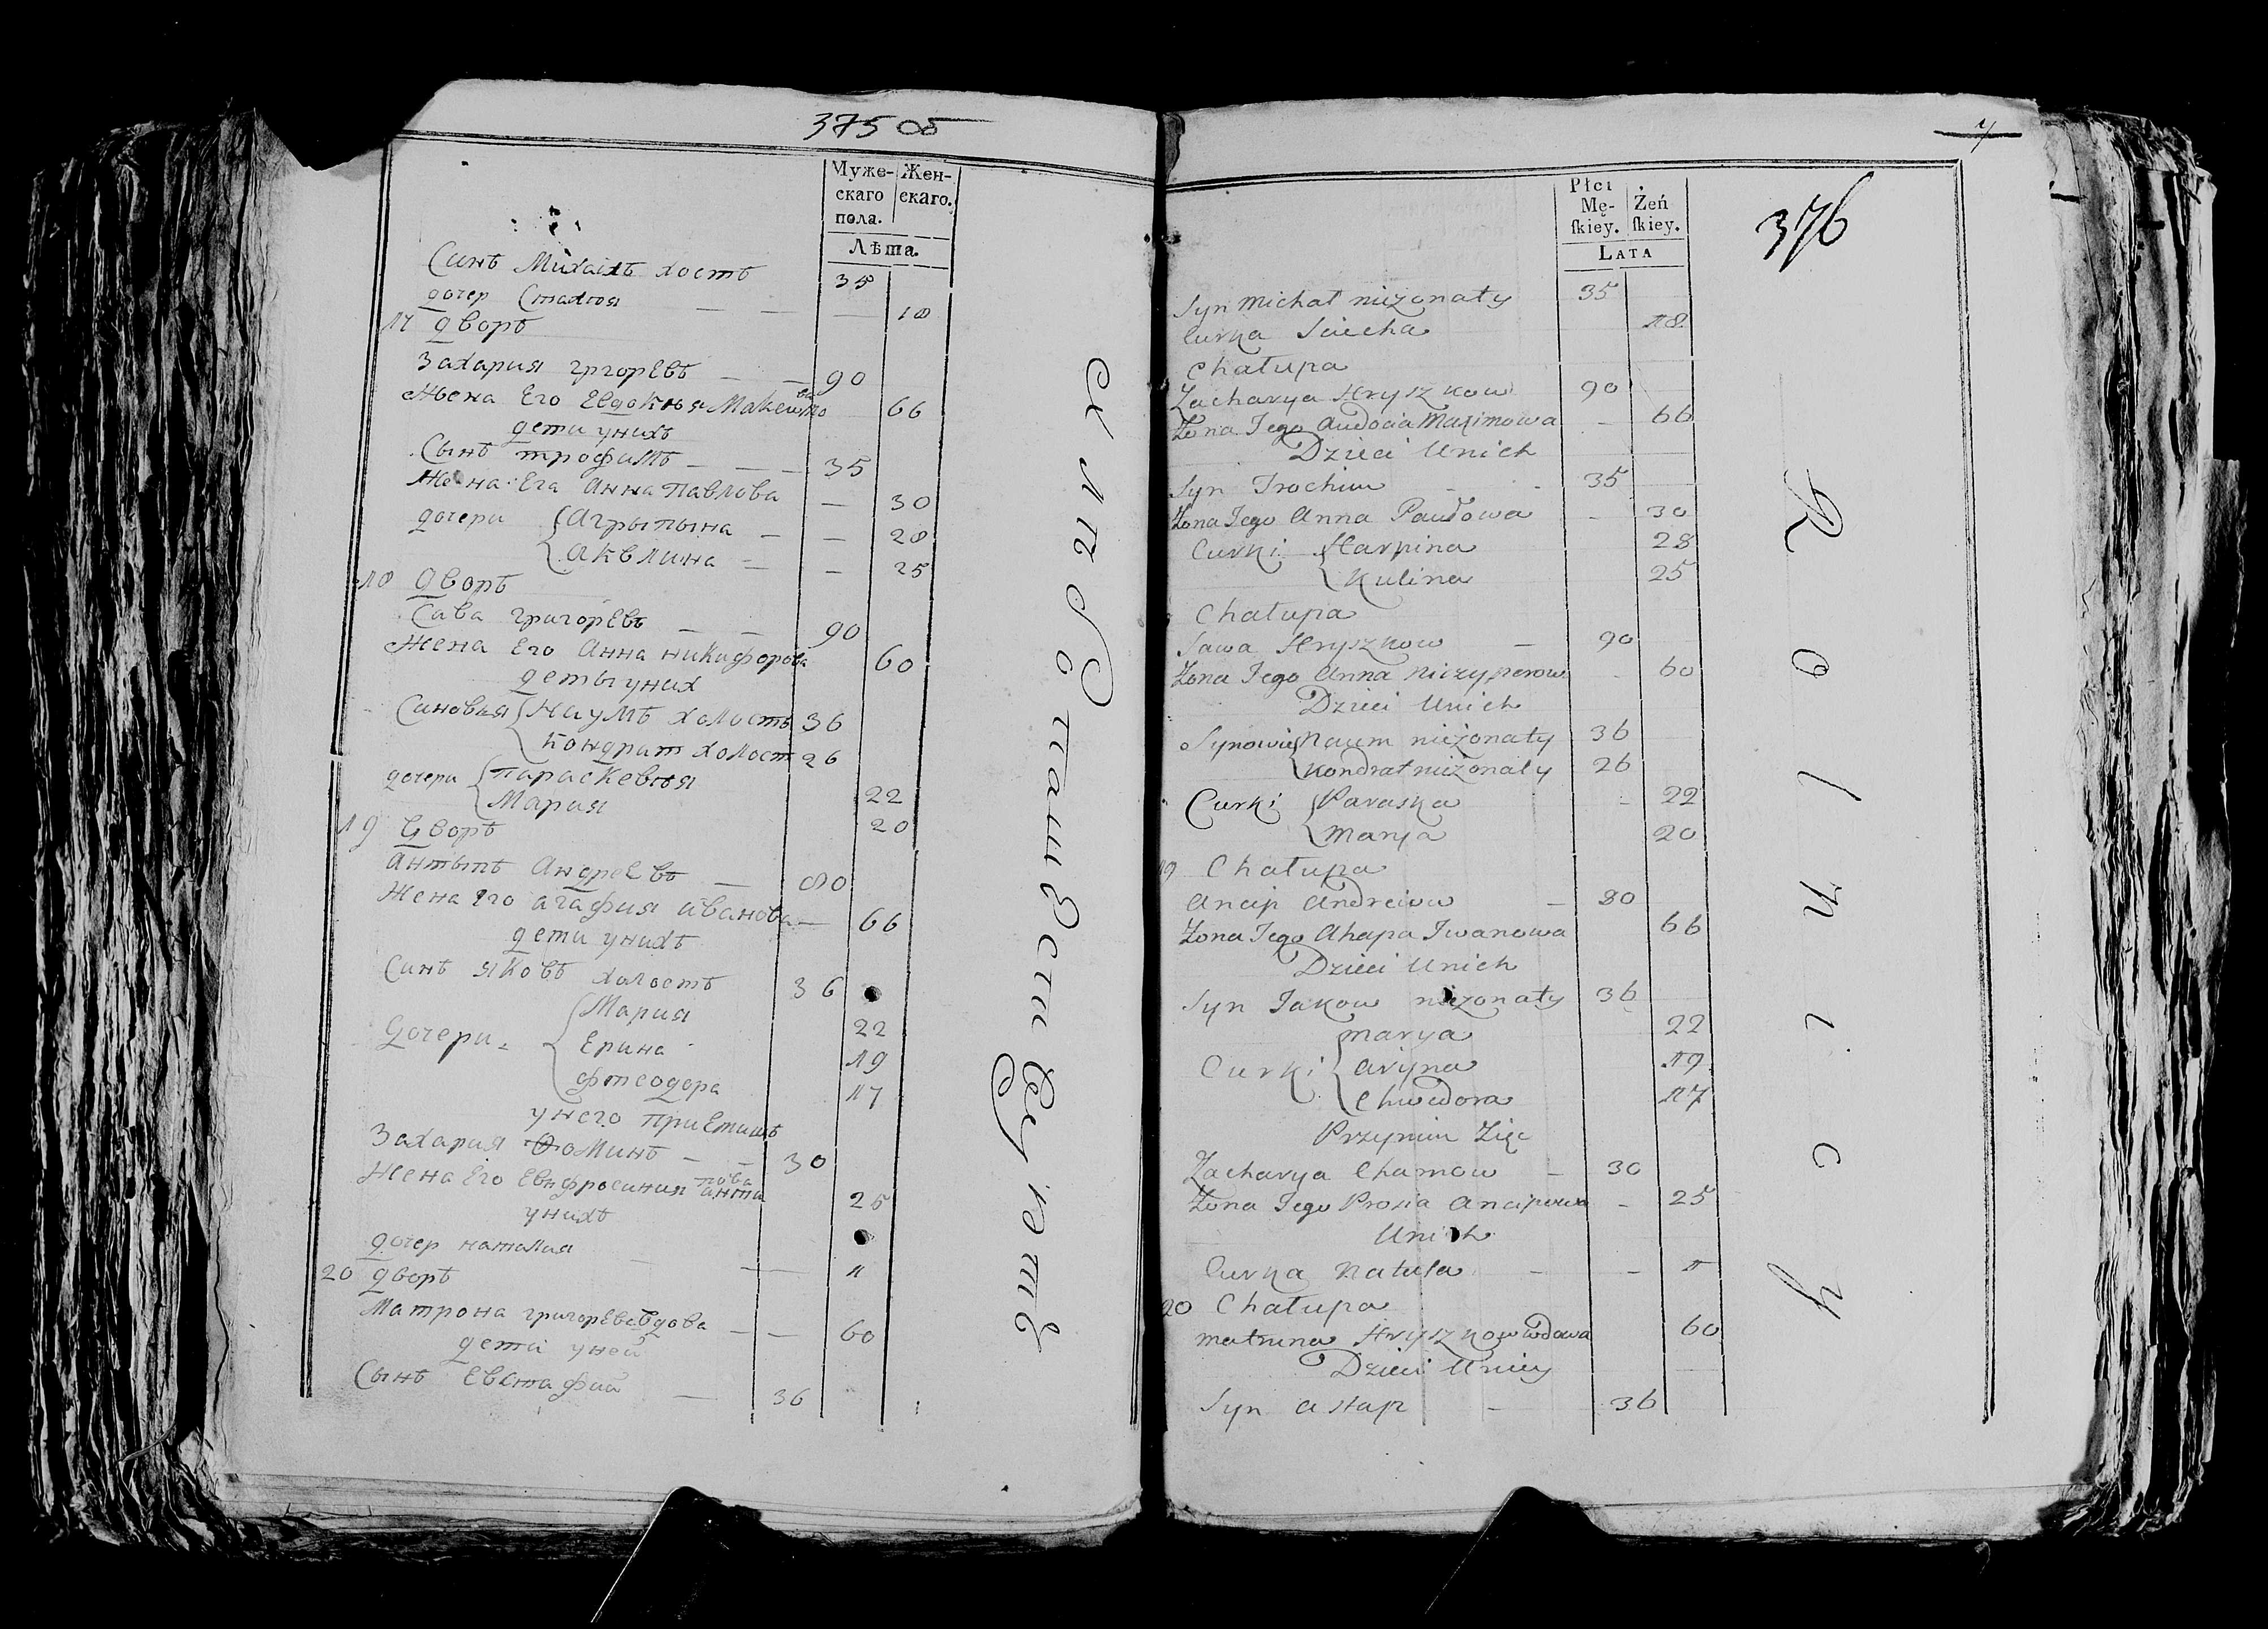 375 об
Муже-
скаго
пола.
Жен-
скаго.
Лѣта.
Синъ Михаілъ хостъ 35
дочер Стахюя — — — 18
17 дворъ
Захария гргорЕвъ — — 90
Жена Его Евдокѣя Макеи 66
дети унихъ
Сынъ трофимъ — — — 35
Жена Ега Анна Павлова — 30
дочери { Агрыпына — — 28
{ Аквлина — — 25
18 дворъ
Сава григорЕвъ — — 90
Жена Его Анна никифорова 60
деты уних
Сановья { Наумъ холостъ 36
{ Кондрат холост 26
дочери { параскевѣя 22
{ Мария 20
19 дворъ
Антыпъ АндреЕвъ — 80
Жена Его агафия иванова — 66
дети унихъ
Синъ яковъ холостъ 36
дочери { Мария 22
{ Ерина 19
{ фтеодора 17
унего приЕмишъ
Захария Ѳоминъ — — 30
Жена Его Евфросиния анти
пова 25
унихъ
дочер наталия 1
20 дворъ
Матрона григорЕва вдова — — 60
дети уней
Сынъ Евстафий — 36
376
Płci
Mę-
ſkiey.
Żeń
ſkiey.
LATA
Syn Michał nieżonaty 35
Curka Sciecha 18
Chałupa
Zacharya Hryszkow 90
Żona Jego Audocia Maximowa - 66
Dzieci Unich
Syn Trochim - - 35
Żona Jego Anna Pawłowa - 30
Curki { Harpina 28
{ Kulina 25
Chałupa
Sawa Hryszkow — 90
Żona Jego Anna Niczyperow. - 60
Dzieci Unich
Synowie { Naum nieżonaty 36
{ Kondrat nieżonaty 26
Curki { Paraska - 22
{ Marya 20
19 Chałupa
Ancip Andreiew — 80
Żona Jego Ahapa Iwanowa 66
Dzieci Unich
Syn Jakow nieżonaty 36
Curki { Marya 22
{ Aryna 19
{ Chwedora 17
Przyimu Zięc
Zacharya Chamow — 30
Żona Jego Prosia Ancipowa - 25
Unich
Curka Natula — — 1
20 Chałupa
Matruna Hryszkow wdowa 60
Dzieci Uniey
Syn Astap — 36
R o l n i c y